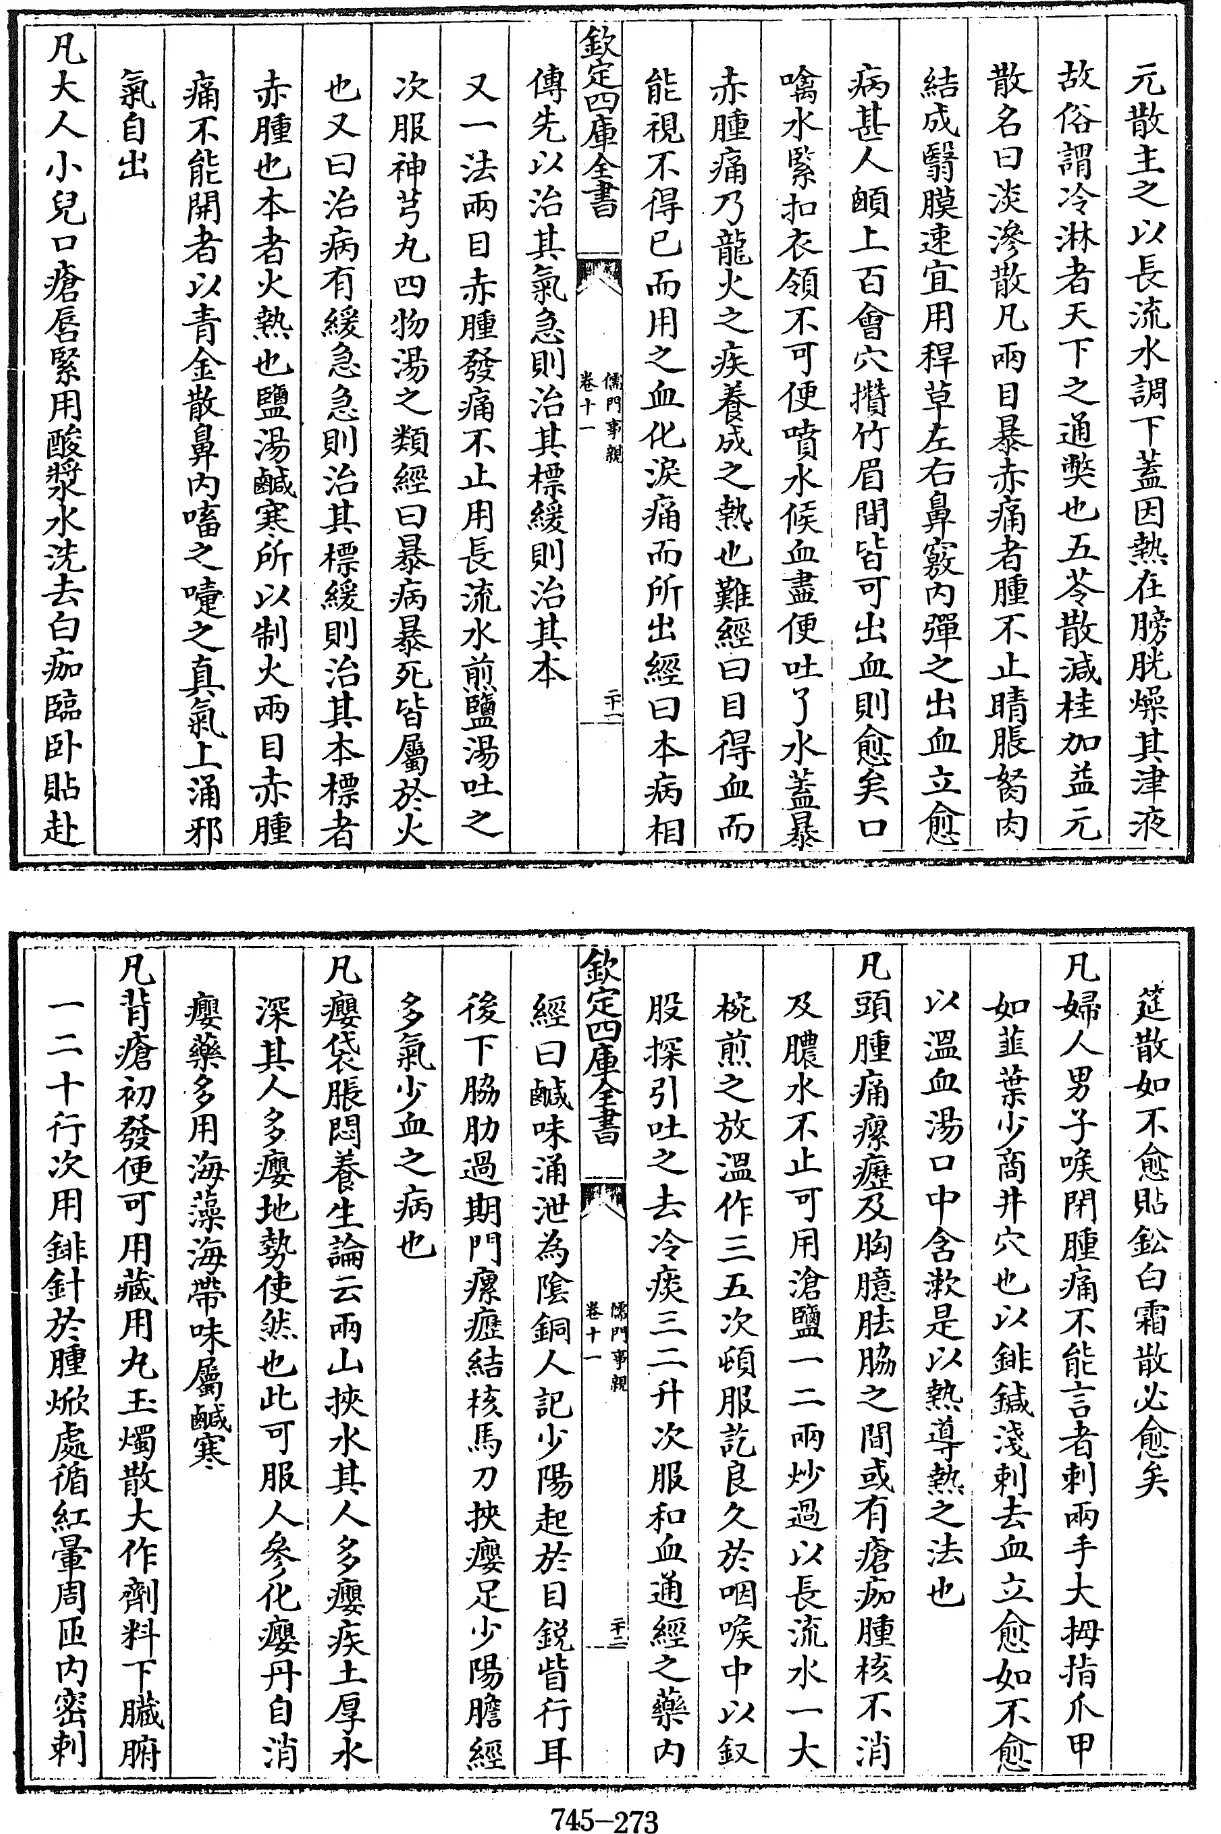 元散主之以長流水調下蓋因熱在膀胱燥其津液
故俗謂冷淋者天下之通獘也五苓散減桂加益元
散名曰淡滲散凡兩目暴赤痛者腫不止睛脹胬肉
結成翳膜速宜用稈草左右鼻竅內彈之出血立愈
病甚人頥上百會穴攢竹眉間皆可出血則愈矣口
噙水緊扣衣領不可便噴水候血盡便吐了水蓋暴
赤腫痛乃龍火之疾養成之熱也難經曰目得血而
能視不得已而用之血化淚痛而所出經曰本病相
欽定四庫全書
儒門事親
卷十一
二十一
傳先以治其氣急則治其標緩則治其本
又一法兩目赤腫發痛不止用長流水煎鹽湯吐之
次服神芎丸四物湯之類經曰暴病暴死皆屬於火
也又曰治病有緩急急則治其標緩則治其本標者
赤腫也本者火熱也鹽湯鹹寒所以制火兩目赤腫
痛不能開者以青金散鼻內㗜之嚏之真氣上涌邪
氣自出
凡大人小兒口瘡唇緊用酸漿水洗去白痂臨卧貼赴
筵散如不愈貼鈆白霜散必愈矣
凡婦人男子喉閉腫痛不能言者刺兩手大拇指爪甲
如韮葉少商井穴也以鈹鍼淺刺去血立愈如不愈
以溫血湯口中含漱是以熱導熱之法也
凡頭腫痛瘰癧及胸臆胠脇之間或有瘡痂腫核不消
及膿水不止可用滄鹽一二兩炒過以長流水一大
椀煎之放溫作三五次頓服訖良久於咽喉中以釵
股探引吐之去冷痰三二升次服和血通經之藥內
欽定四庫全書
儒門事親
卷十一
二十二
經曰鹹味涌泄為陰銅人記少陽起於目銳眥行耳
後下脇肋過期門瘰癧結核馬刀挾癭足少陽膽經
多氣少血之病也
凡癭袋脹悶養生論云兩山挾水其人多癭疾土厚水
深其人多癭地勢使然也此可服人參化癭丹自消
癭藥多用海藻海帶味屬鹹寒
凡背瘡初發便可用藏用丸玉燭散大作劑料下臟腑
一二十行次用鈹針於腫焮處循紅暈周匝內密刺
745-273